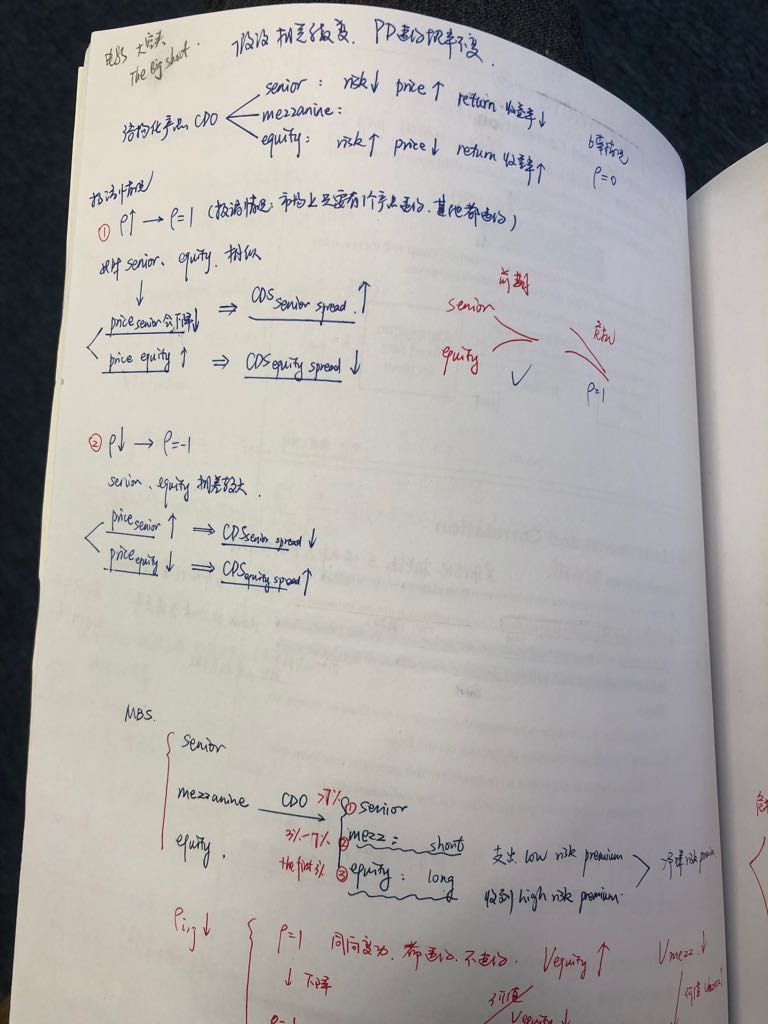 电影 大空头.
The Big short.
假设 相关系数变. PD违约概率不变.
结构化产品 CDO
senior : risk↓ price↑ return 收益率↓
mezzanine :
equity : risk↑ price↓ return 收益率↑
ρ=0
极端情况
① ρ↑ → ρ=1 (极端情况: 市场上只要有1个产品违约. 其他都违约)
此时 senior、equity. 相似
↓
price senior 会下降↓ ⇒ CDS senior spread.↑
price equity ↑ ⇒ CDS equity spread ↓
前期
senior
equity
✓
危机
ρ=1
② ρ↓ → ρ=-1
senior、equity 相差较大.
price senior ↑ ⇒ CDS senior spread ↓
price equity ↓ ⇒ CDS equity spread ↑
MBS.
senior
mezzanine
equity.
CDO →
>7% ① senior
3%-7% ② mezz : short 支出 low risk premium
the first 3% ③ equity : long 收到 high risk premium.
净赚 risk premium
ρij↓
ρ=1 同向变动. 都违约. 不违约. Vequity ↑ Vmezz.↓
↓下降
价值
Vequity ↓
价值